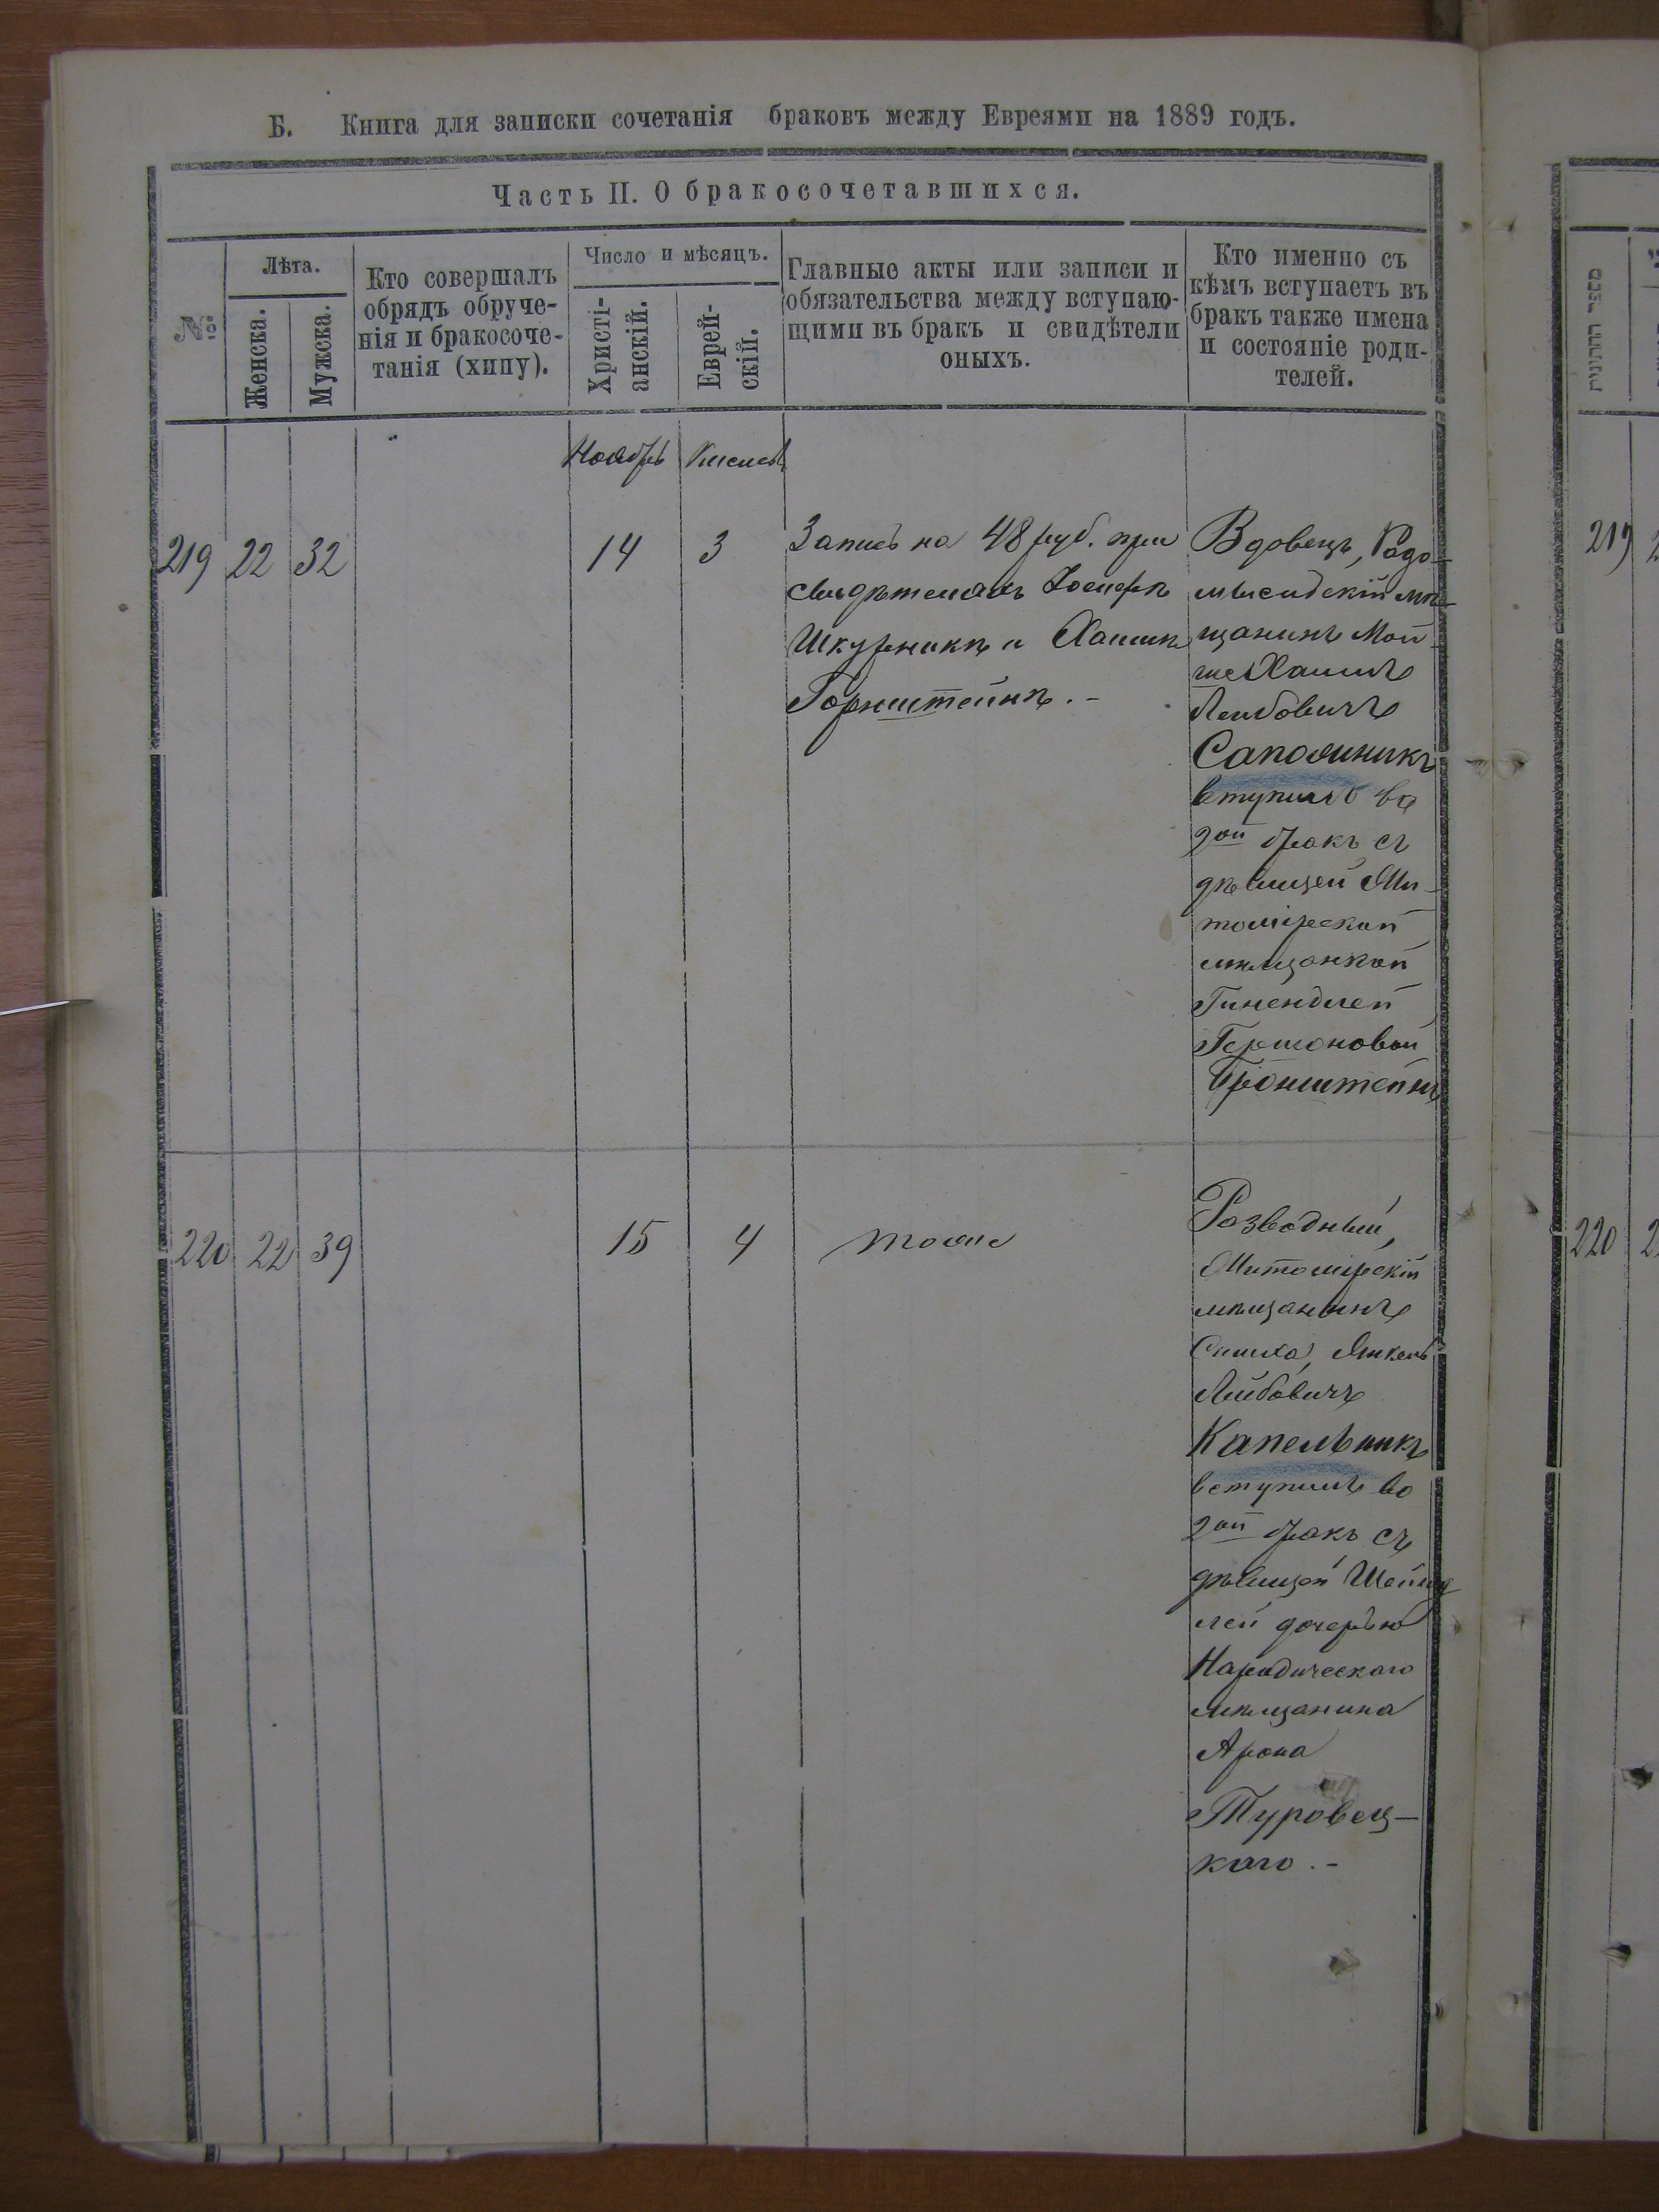 Б. Книга для записки сочетанія браковъ между Евреями на 1889 годъ.
Часть II. О бракосочетавшихся.
№
Лѣта.
Женска.
Мужска.
Кто совершалъ
обрядъ обруче-
нія и бракосоче-
танія (хипу).
Число и мѣсяцъ.
Христі-
анскій.
Еврей-
скій.
Главные акты или записи и
обязательства между вступаю-
щими въ бракъ и свидѣтели
оныхъ.
Кто именно съ
кѣмъ вступаетъ въ
бракъ также имена
и состояніе роди-
телей.
מספר החתונות
Ноябрь Кислев
219 22 32 14 3
Запись на 48 руб. при
свидѣтеляхъ Іосифѣ
Шкурникѣ и Хаимѣ
Горнштейнѣ.-
Вдовецъ, Радо-
мысльскій мѣ-
щанинъ Мой-
ше Хаимъ
Лейбовичъ
Сапожникъ
вступилъ во
2ой бракъ съ
дѣвицей Жи-
томірской
мѣщанкой
Гинендлей
Гершоновой
Бронштейнъ
219
220 22 39 15 4 тоже
Разводный,
Житомірскій
мѣщанинъ
Симха, Янкель
Лейбовичъ
Капельникъ
вступилъ во
2ой бракъ съ
дѣвицей Шейнд
лей дочерью
Народическаго
мѣщанина
Арона
Туровец-
каго.-
220